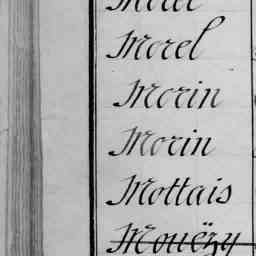 Morel
Morin
Morin
Mottais
Mouëzy